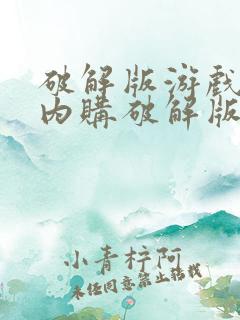 破解版游戏
内購破解版
小青梓阿
未经同意禁止转载